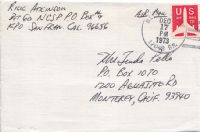 Rick Atkinson
Det-60 NCSP PO Box #4
FPO San Fran. Cal. 96656
Air Mail
DEC
17
PM
1973
Mrs Linda Pello
P.O. Box 1070
1200 Aguajito Rd
Monterey, Calif. 93940